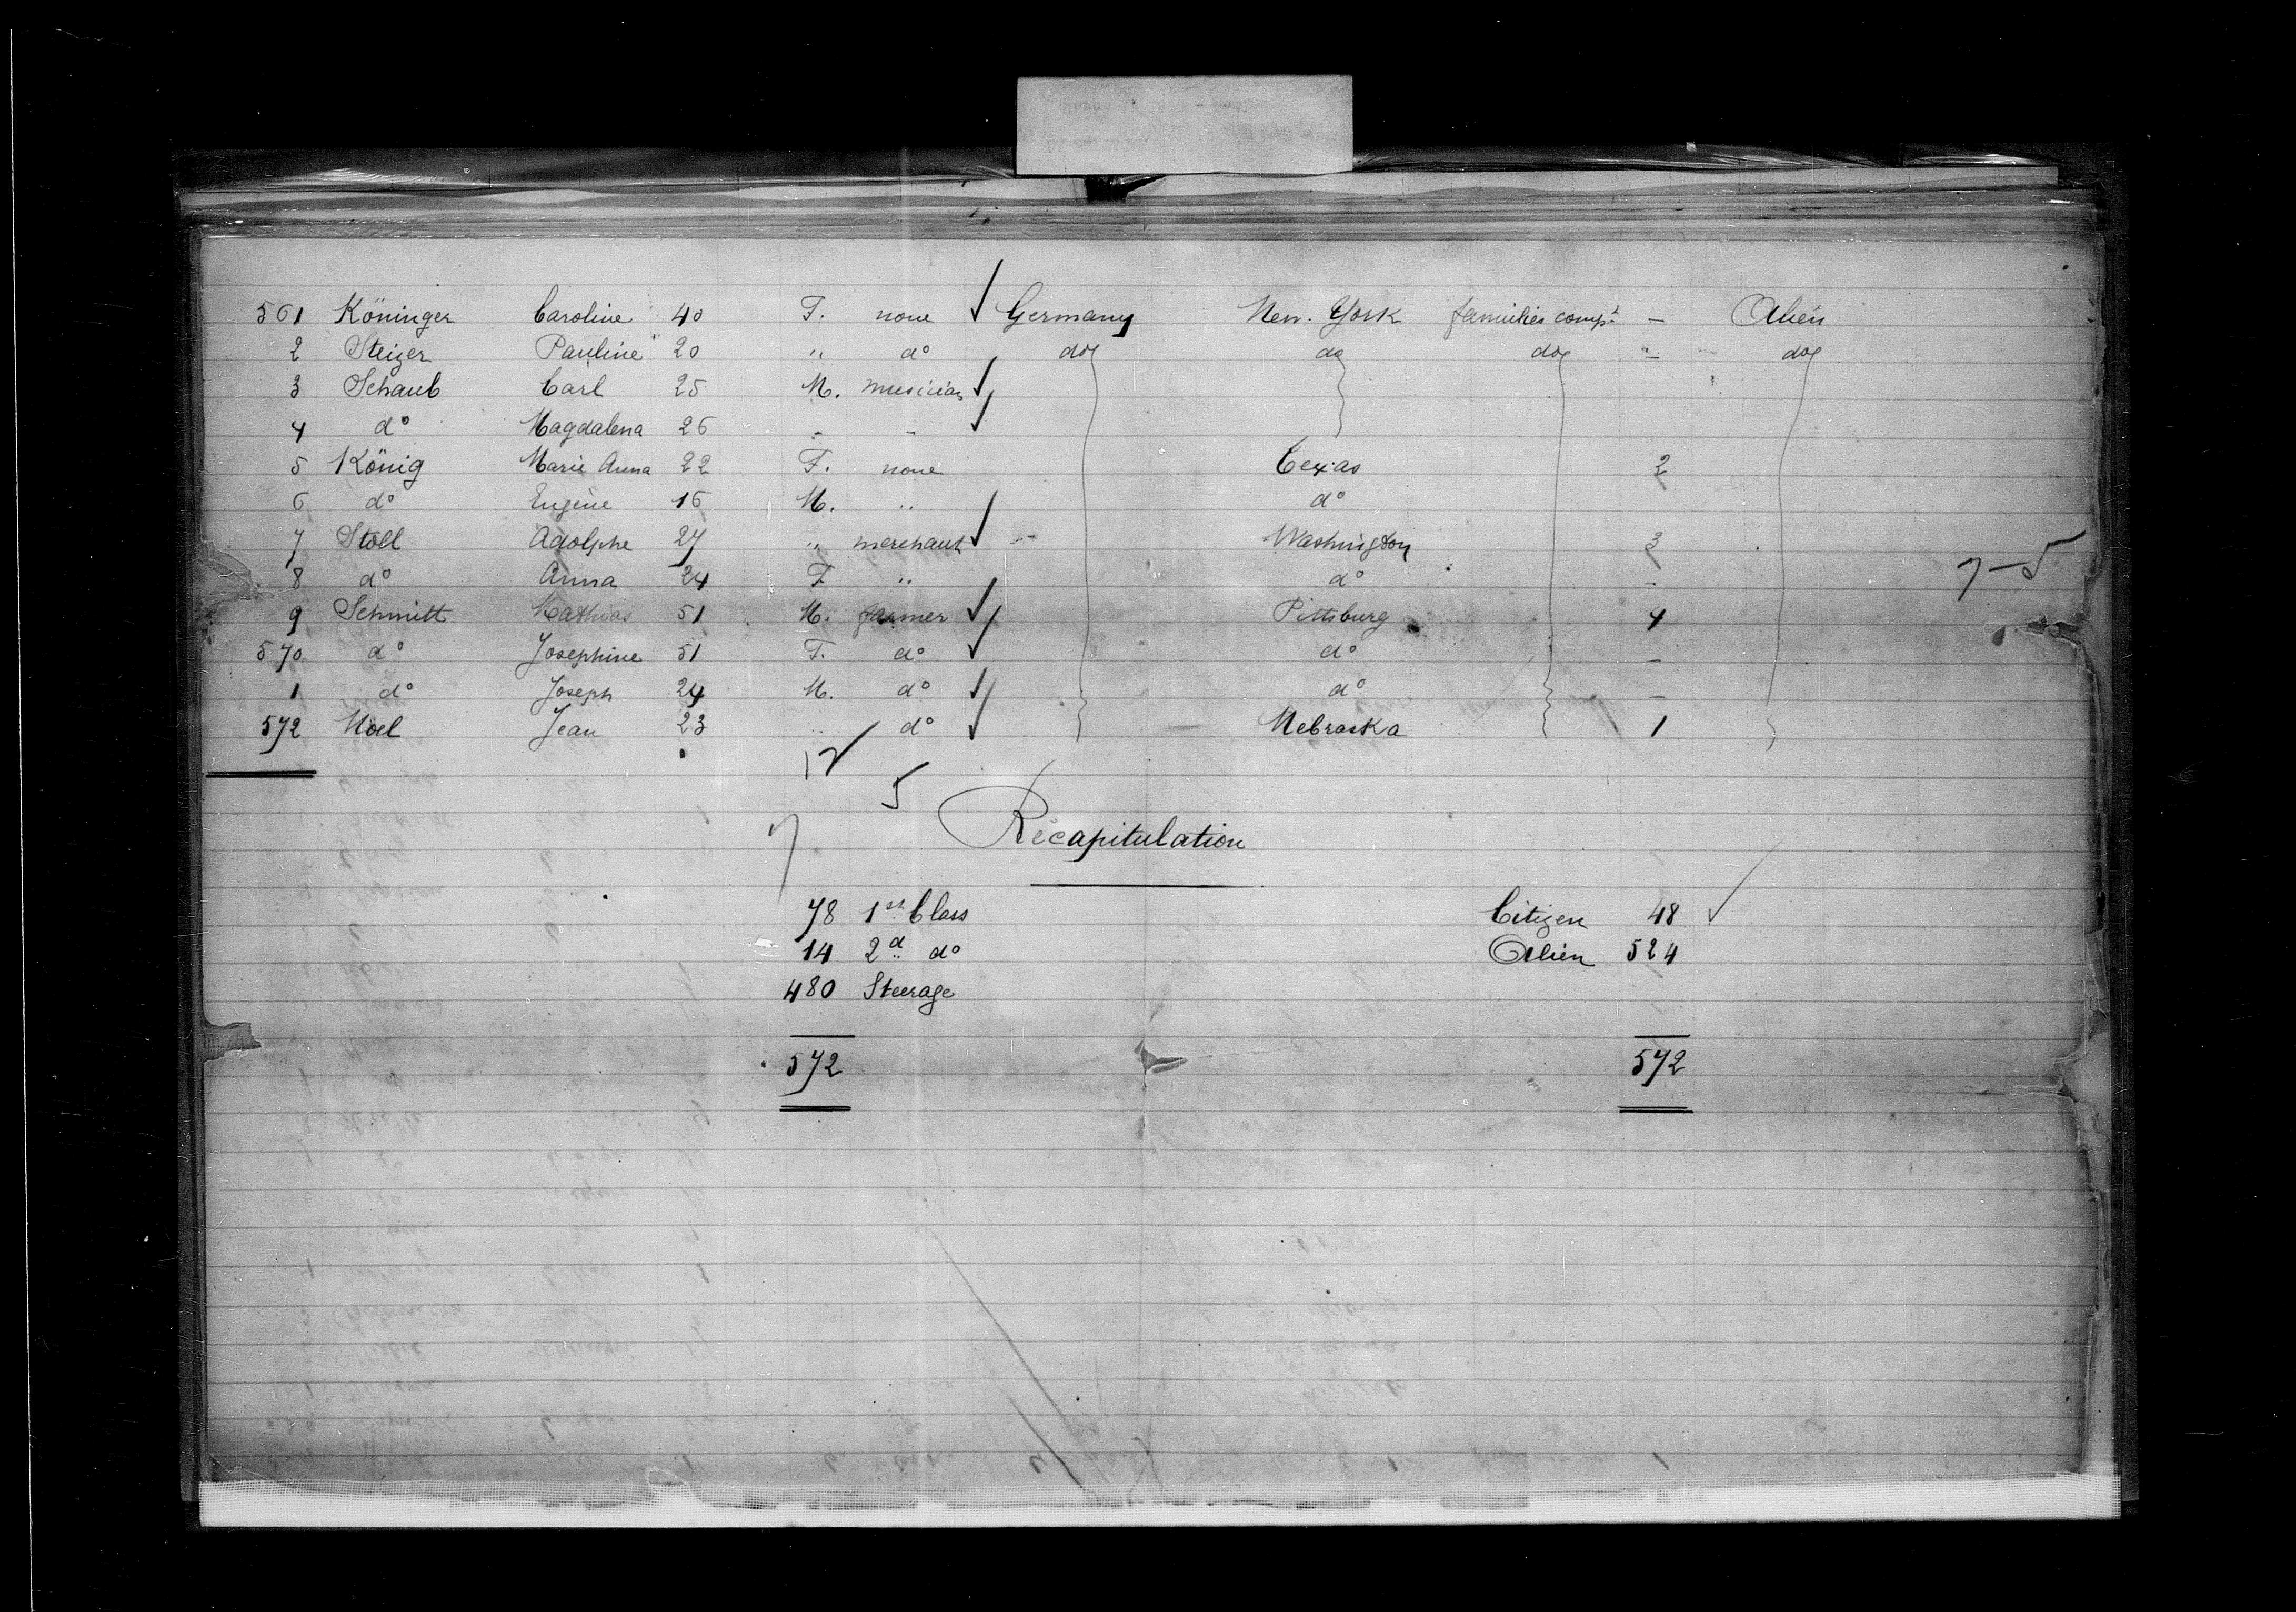 561 Köninger Caroline 40 F. none Germany New. York families comp.t — Alien
2 Steizer Pauline 20 " d° do do do — do
3 Schaub Carl 25 M. musician
4 d° Magdalena 26 - -
5 König Marie Anna 22 F. none Texas 2
6 d° Eugène 16 M. " d°
7 Stoll Adolphe 27 " merchant Washington 3
8 d° Anna 24 F. " d° - 7-5
9 Schmitt Mathias 51 M. farmer Pittsburg 4
570 d° Josephine 51 F. d° d° —
1 d° Joseph 24 M. d° d° —
572 Noel Jean 23 " d° Nebraska 1
12
5
7
Récapitulation
78 1st Class Citizen 48
14 2d d° Alien 524
480 Steerage
572 572